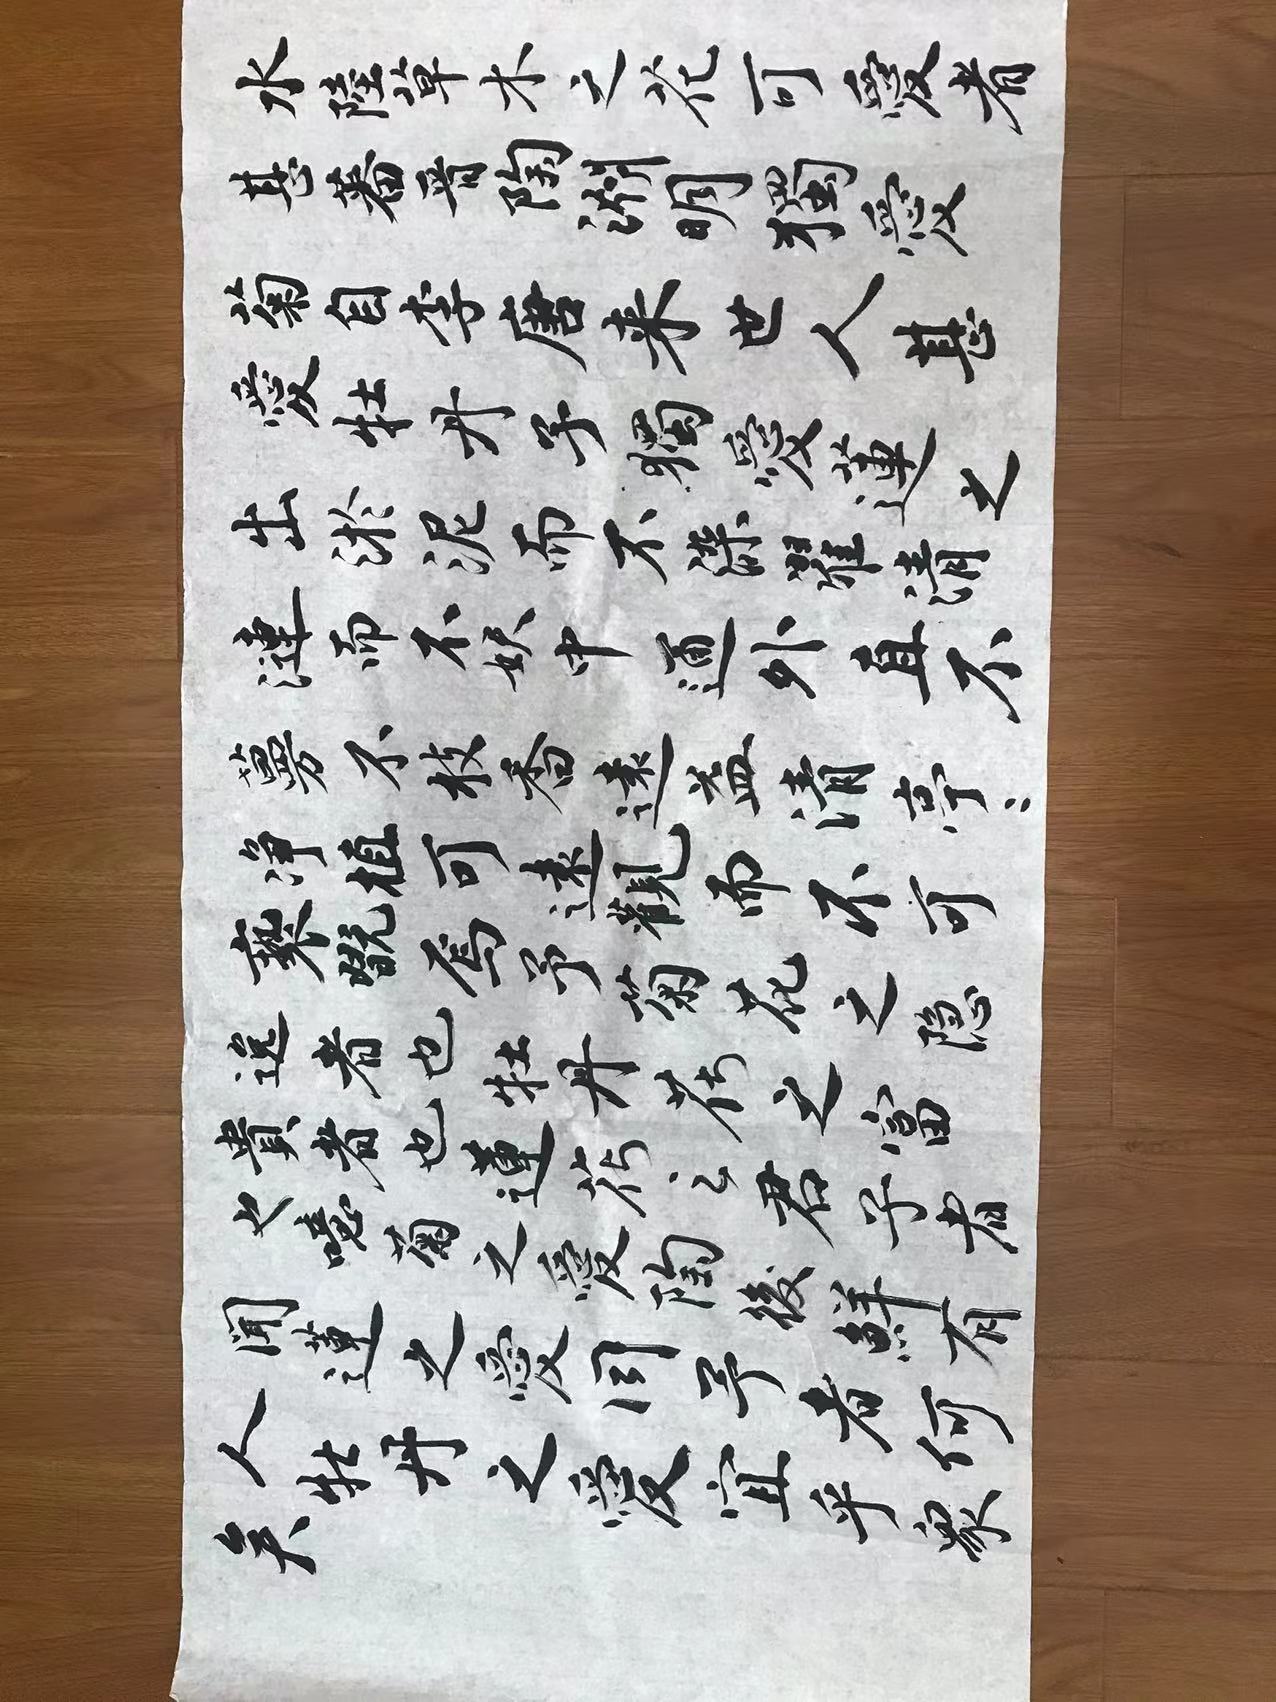 水陸草木之花可愛者
甚蕃晋陶淵明獨愛
菊自李唐来世人甚
愛牡丹予獨愛蓮之
出淤泥而不染濯清
漣而不妖中通外直不
蔓不枝香遠益清亭〻
净植可遠觀而不可
褻翫焉予菊花之隐
逸者也牡丹花之富
貴者也蓮花之君子者
也噫菊之愛陶後鮮有
聞蓮之愛同予者何
人牡丹之愛宜乎衆
矣